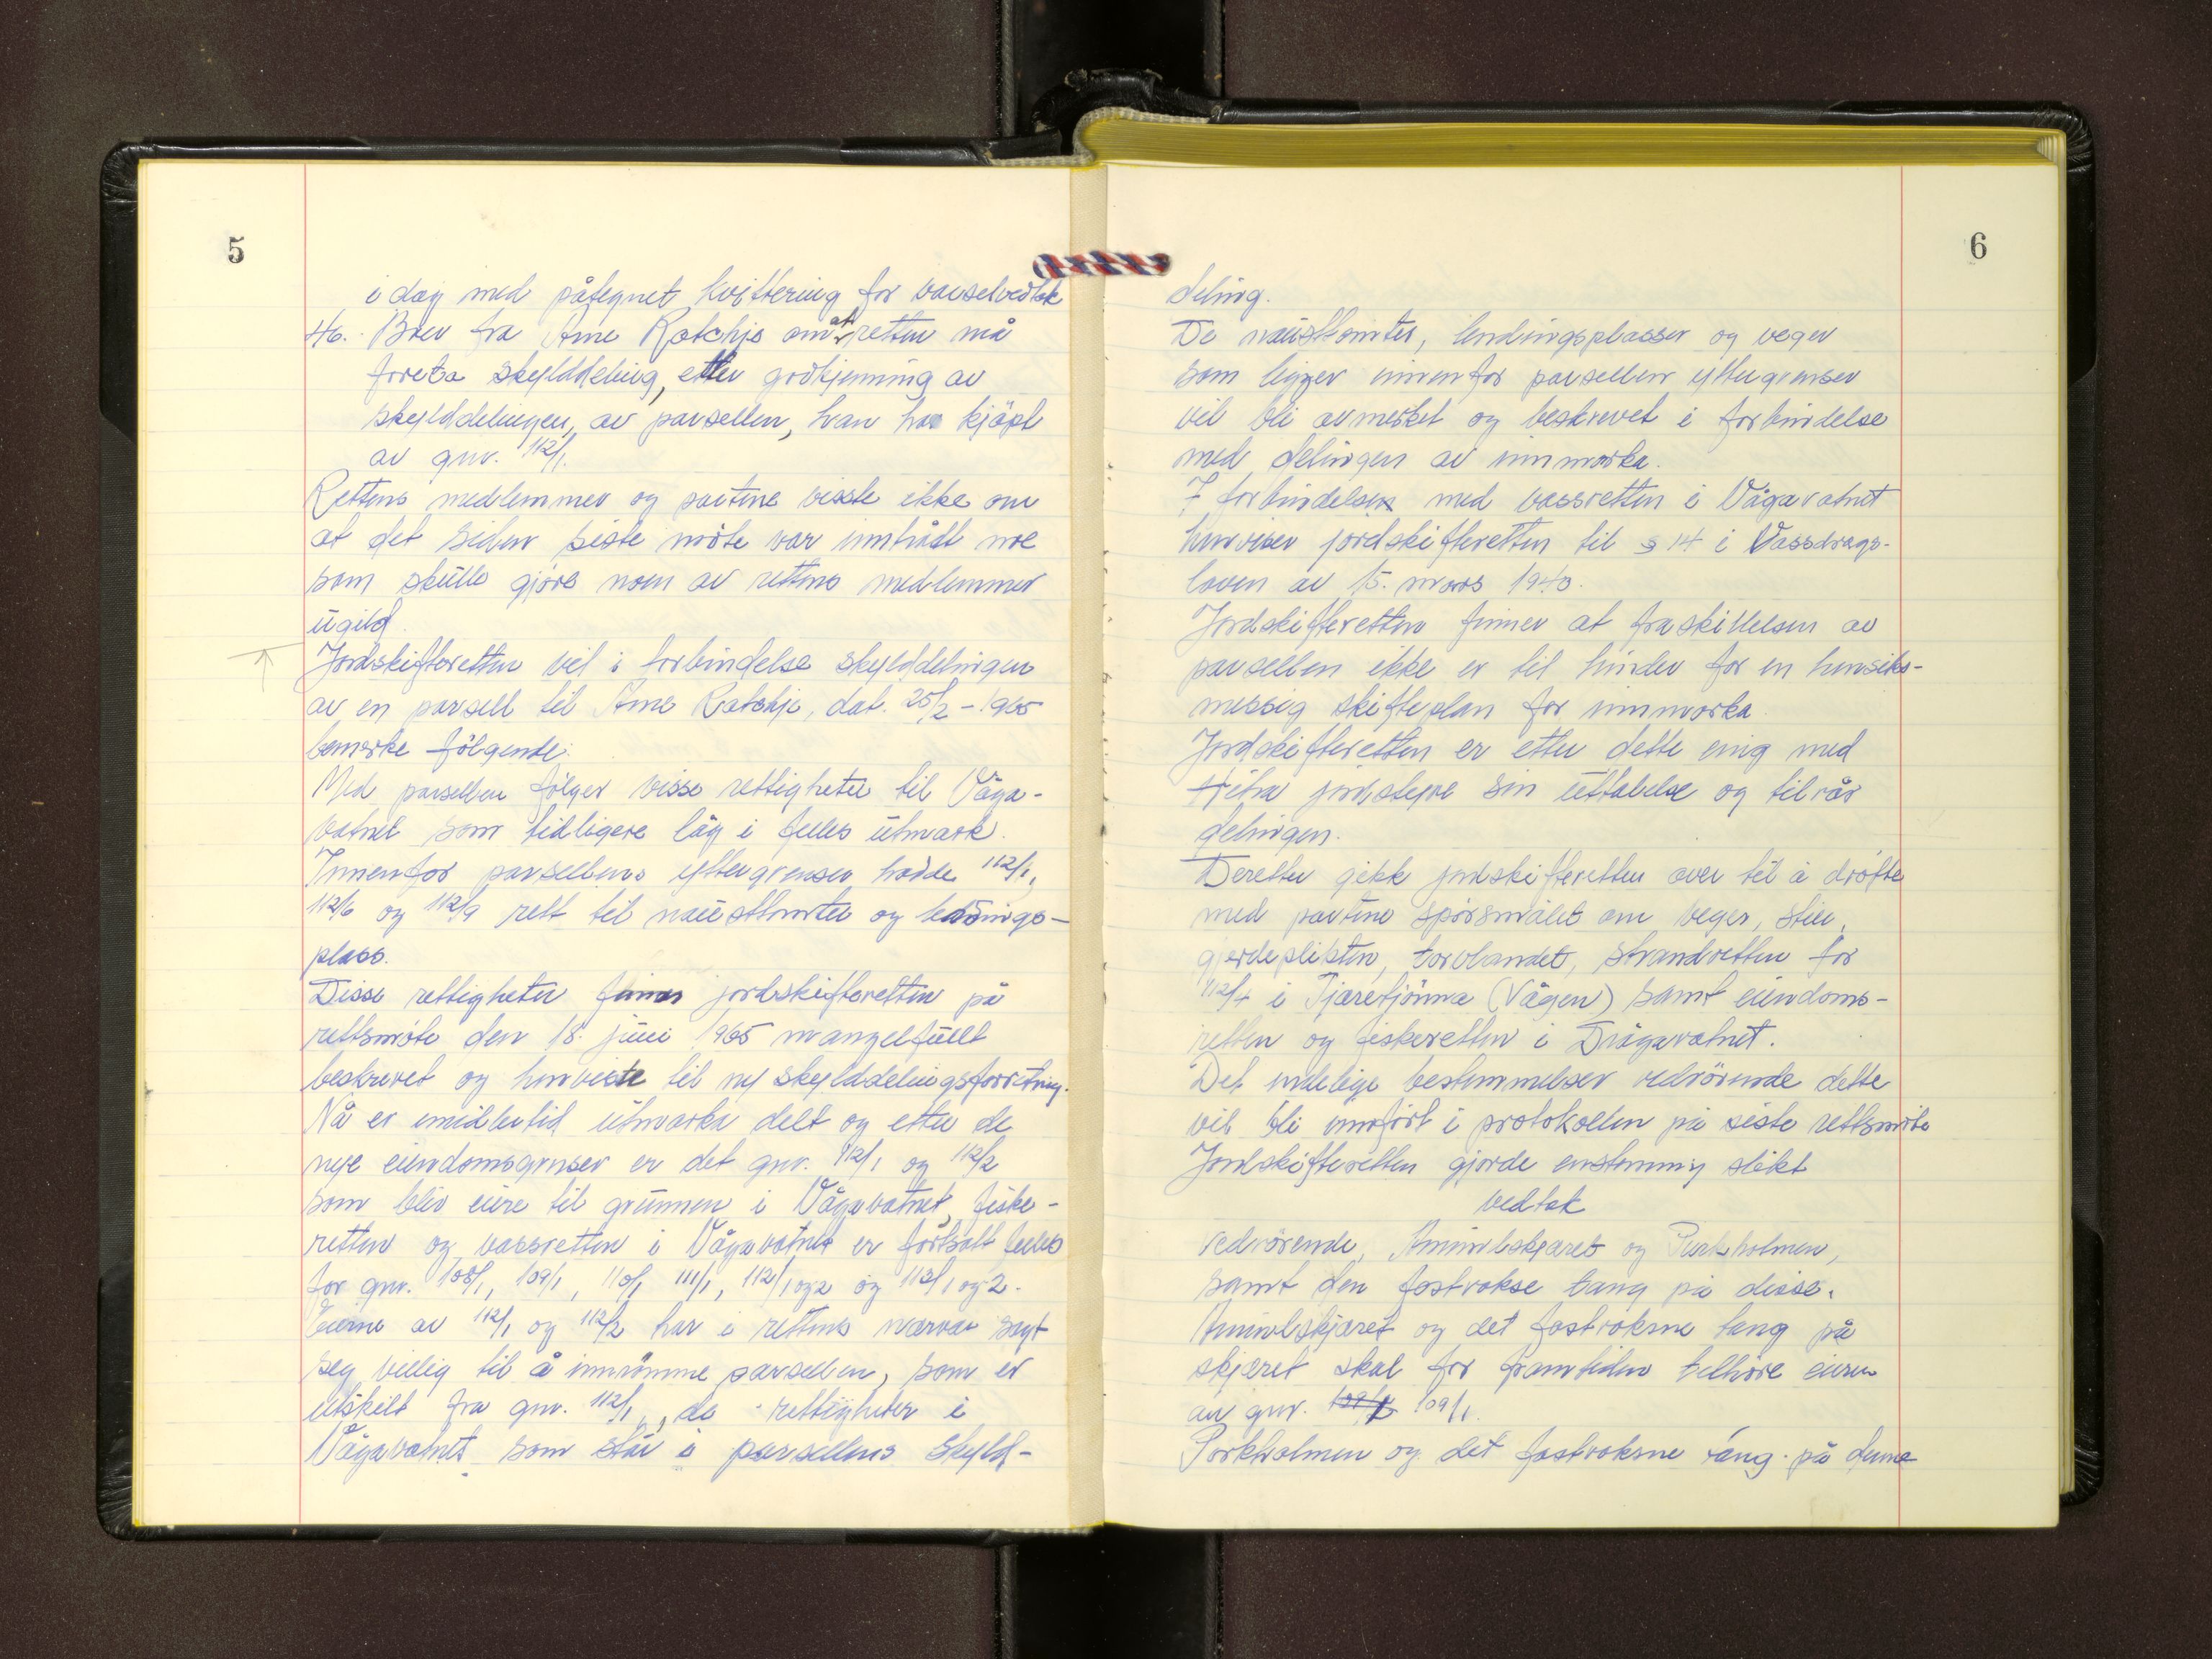 5
i dag med påtegnet kvittering for varselvedtak
46. Brev fra Arne Ratchje om at retten må
foreta skylddeling, etter godkjenning av
skylddelingen, av parsellen, han har kjöpt
av gnr. 112/1.
Rettens medlemmer og partene visste ikke om
at det siden siste möte var inntrådt noe
som skulle gjöre noen av rettens medlemmer
ugild.
Jordskifteretten vil i forbindelse skylddelingen
av en parsell til Arne Ratchje, dat. 25/2 - 1965
bemerke fölgende:
Med parsellen fölger visse rettigheter til Våga-
vatnet som tidligere låg i felles utmark.
Innenfor parsellens yttergrenser hadde 112/1,
112/6 og 112/9 rett til nausttomter og lednings-
plass.
Disse rettigheter finner jordskifteretten på
rettsmöte den 18. juni 1965 mangelfullt
beskrevet og henviste til ny skylddelingsforretning.
Nå er imidlertid utmarka delt og etter de
nye eiendomsgrenser er det gnr. 112/1 og 112/2
som blir eiere til grunnen i Vågavatnet, fiske-
retten og vassretten i Vågavatnet er fortsatt felles
for gnr. 108/1, 109/1, 110/1, 111/1, 112/1 og 2 og 113/1 og 2.
Eierne av 112/1 og 112/2 har i rettens nærvær sagt
seg villig til å innrömme parsellen, som er
utskilt fra gnr. 112/1, de rettigheter i
Vågavatnet som står i parsellens skyld-
6
deling.
De nausttomter, lendingsplasser og veger
som ligger innenfor parsellens yttergrenser
vil bli avmerket og beskrevet i forbindelse
med delingen av innmarka.
I forbindelsen med vassretten i Vågavatnet
henviser jordskifteretten til § 14 i Vassdrags-
loven av 15. mars 1940.
Jordskifteretten finner at fraskillelsen av
parsellen ikke er til hinder for en hensikts-
messig skifteplan for innmarka.
Jordskifteretten er etter dette enig med
Hitra jordstyre sin uttalelse og tilrår
delingen.
Deretter gikk jordskifteretten over til å dröfte
med partene spörsmålet om veger, stier,
gjerdeplikten, torvlandet, strandretten for
112/4 i Tjæretjönna (Vågen) samt eiendoms-
retten og fiskeretten i Drågavatnet.
Det endelige bestemmelser vedrörende dette
vil bli innfört i protokollen på siste rettsmöte
Jordskifteretten gjorde enstemmig slikt
vedtak
vedrörende, Aunvlskjæret og Purkholmen,
samt den fastvokse tang på disse.
Aunvlskjæret og det fastvoksne tang på
skjæret skal for framtiden tilhöre eieren
av gnr. 109/2 109/1.
Porkholmen og det fastvoksne tang på denne